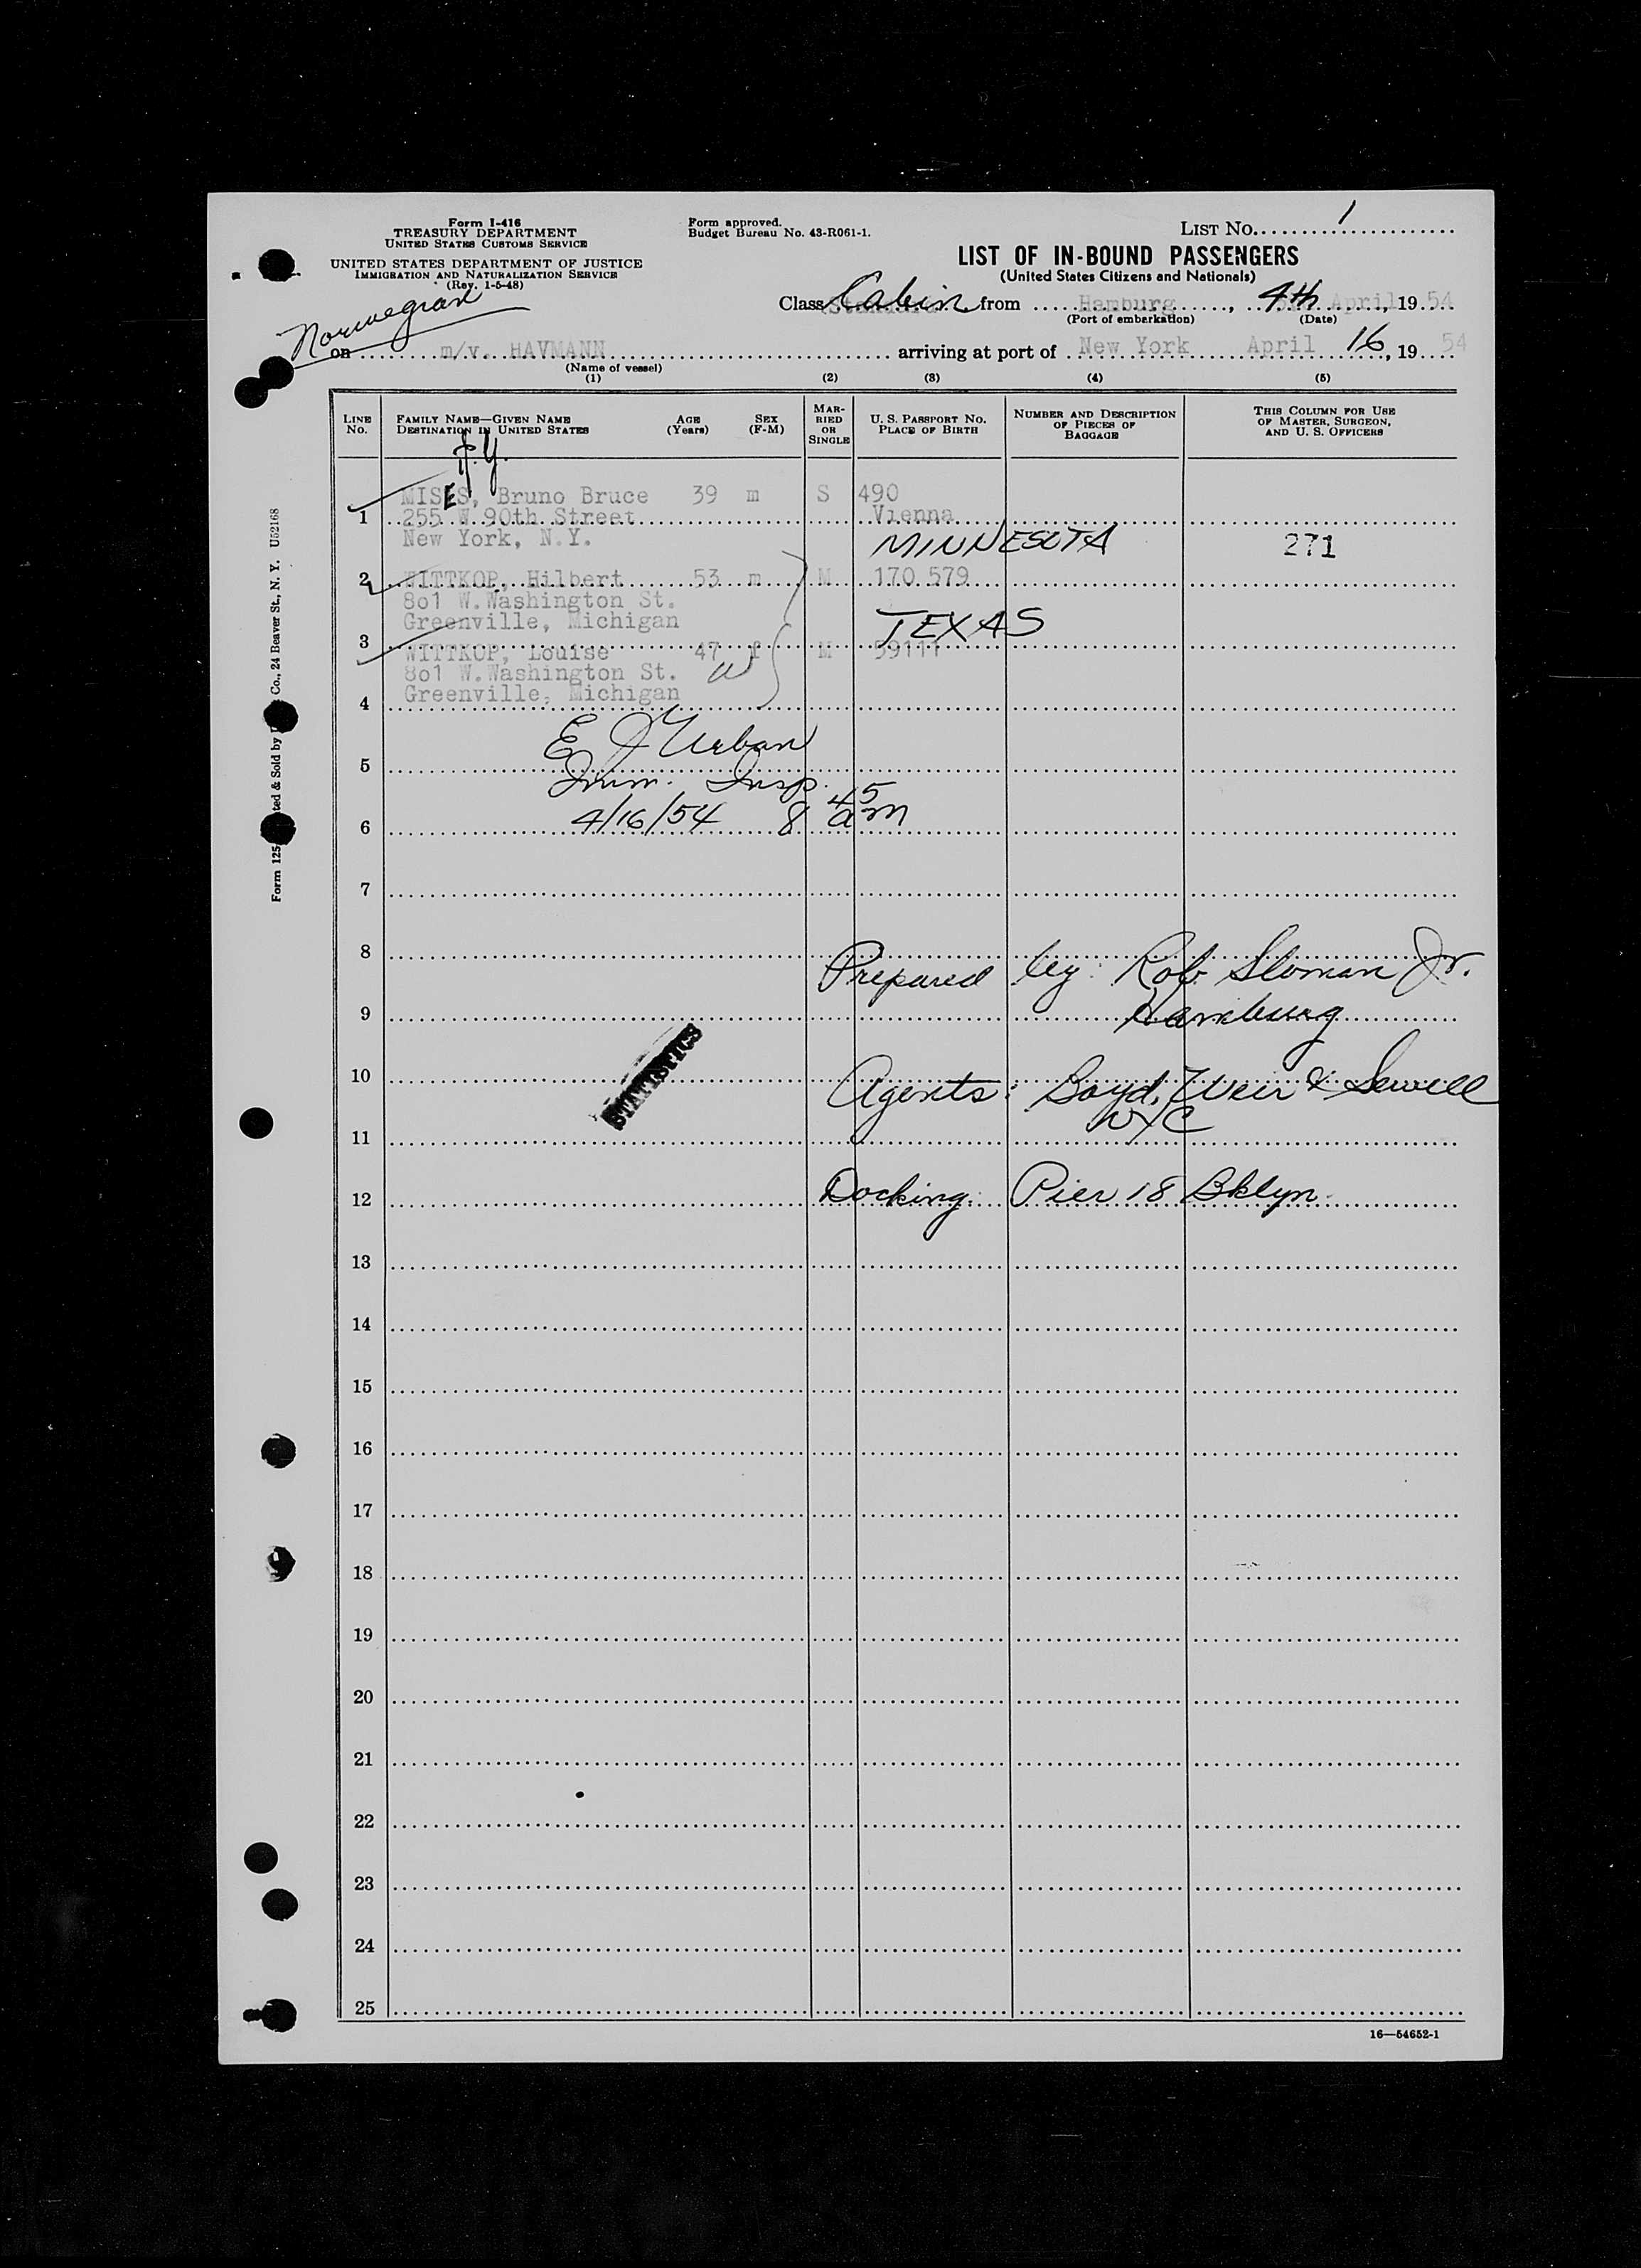 Form I-416
TREASURY DEPARTMENT
UNITED STATES CUSTOMS SERVICE
UNITED STATES DEPARTMENT OF JUSTICE
IMMIGRATION AND NATURALIZATION SERVICE
(Rev. 1-5-48)
Form approved.
Budget Bureau No. 43-R061-1.
LIST NO. 1
LIST OF IN-BOUND PASSENGERS
(United States Citizens and Nationals)
Norwegian
Class Cabin from Hamburg, 4th April, 1954
(Port of embarkation) (Date)
on m/v. HAVMANN arriving at port of New York April 16, 1954
(Name of vessel)
(1) (2) (3) (4) (5)
LINE NO.
FAMILY NAME—GIVEN NAME
DESTINATION IN UNITED STATES
AGE (Years)
SEX (F-M)
MARRIED OR SINGLE
U. S. PASSPORT NO.
PLACE OF BIRTH
NUMBER AND DESCRIPTION OF PIECES OF BAGGAGE
THIS COLUMN FOR USE OF MASTER, SURGEON, AND U. S. OFFICERS
1 MISES, Bruno Bruce 39 m S 490
255 W 90th Street Vienna
New York, N.Y.
MINNESOTA 271
2 WITTKOP, Hilbert 53 m M 170 579
801 W. Washington St.
Greenville, Michigan
TEXAS
3 WITTKOP, Louise 47 f M 59111
801 W. Washington St. W
Greenville, Michigan
4
E J Urban
5
Imm. Insp.
6 4/16/54 8 45 am
7
8
Prepared by: Rob. Sloman Jr.
9 Hamburg
10
Agents: Boyd, Weir & Sewell
NYC
11
12 Docking: Pier 18 Bklyn.
STATISTICS
13
14
15
16
17
18
19
20
21
22
23
24
25
16—54652-1
Co., 24 Beaver St., N. Y. U52168